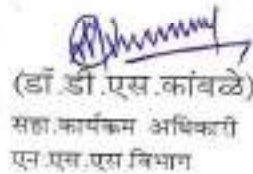 (डॉ.डी.एस.कांबळे)
सहा.कार्यक्रम अधिकारी
एन.एस.एस.विभाग